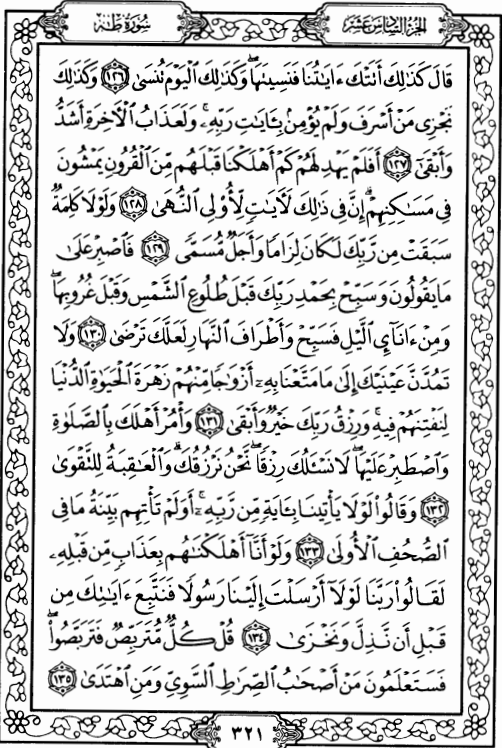 الجزء السادس عشر
سورة طه
قَالَ كَذَٰلِكَ أَتَتْكَ ءَايَٰتُنَا فَنَسِيتَهَا ۖ وَكَذَٰلِكَ ٱلْيَوْمَ تُنسَىٰ ١٢٦ وَكَذَٰلِكَ
نَجْزِى مَنْ أَسْرَفَ وَلَمْ يُؤْمِنۢ بِـَٔايَٰتِ رَبِّهِۦ ۚ وَلَعَذَابُ ٱلْـَٔاخِرَةِ أَشَدُّ
وَأَبْقَىٰٓ ١٢٧ أَفَلَمْ يَهْدِ لَهُمْ كَمْ أَهْلَكْنَا قَبْلَهُم مِّنَ ٱلْقُرُونِ يَمْشُونَ
فِى مَسَٰكِنِهِمْ ۗ إِنَّ فِى ذَٰلِكَ لَـَٔايَٰتٍ لِّأُو۟لِى ٱلنُّهَىٰ ١٢٨ وَلَوْلَا كَلِمَةٌ
سَبَقَتْ مِن رَّبِّكَ لَكَانَ لِزَامًا وَأَجَلٌ مُّسَمًّى ١٢٩ فَٱصْبِرْ عَلَىٰ
مَا يَقُولُونَ وَسَبِّحْ بِحَمْدِ رَبِّكَ قَبْلَ طُلُوعِ ٱلشَّمْسِ وَقَبْلَ غُرُوبِهَا ۖ
وَمِنْ ءَانَآئِ ٱلَّيْلِ فَسَبِّحْ وَأَطْرَافَ ٱلنَّهَارِ لَعَلَّكَ تَرْضَىٰ ١٣٠ وَلَا
تَمُدَّنَّ عَيْنَيْكَ إِلَىٰ مَا مَتَّعْنَا بِهِۦٓ أَزْوَٰجًا مِّنْهُمْ زَهْرَةَ ٱلْحَيَوٰةِ ٱلدُّنْيَا
لِنَفْتِنَهُمْ فِيهِ ۚ وَرِزْقُ رَبِّكَ خَيْرٌ وَأَبْقَىٰ ١٣١ وَأْمُرْ أَهْلَكَ بِٱلصَّلَوٰةِ
وَٱصْطَبِرْ عَلَيْهَا ۖ لَا نَسْـَٔلُكَ رِزْقًا ۖ نَّحْنُ نَرْزُقُكَ ۗ وَٱلْعَٰقِبَةُ لِلتَّقْوَىٰ
١٣٢ وَقَالُوا۟ لَوْلَا يَأْتِينَا بِـَٔايَةٍ مِّن رَّبِّهِۦٓ ۚ أَوَلَمْ تَأْتِهِم بَيِّنَةُ مَا فِى
ٱلصُّحُفِ ٱلْأُولَىٰ ١٣٣ وَلَوْ أَنَّآ أَهْلَكْنَٰهُم بِعَذَابٍ مِّن قَبْلِهِۦ
لَقَالُوا۟ رَبَّنَا لَوْلَآ أَرْسَلْتَ إِلَيْنَا رَسُولًا فَنَتَّبِعَ ءَايَٰتِكَ مِن
قَبْلِ أَن نَّذِلَّ وَنَخْزَىٰ ١٣٤ قُلْ كُلٌّ مُّتَرَبِّصٌ فَتَرَبَّصُوا۟ ۖ
فَسَتَعْلَمُونَ مَنْ أَصْحَٰبُ ٱلصِّرَٰطِ ٱلسَّوِىِّ وَمَنِ ٱهْتَدَىٰ ١٣٥
٣٢١